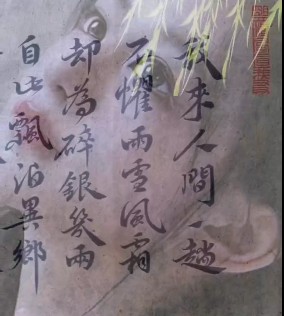 我來人間一趟
不懼雨雪風霜
却為碎銀幾兩
自此飄泊異鄉